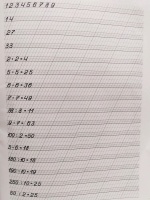 1 2 3 4 5 6 7 8 9
14
27
33
2 · 2 = 4
5 · 5 = 25
6 · 6 = 36
7 · 7 = 49
88 : 8 = 11
9 · 7 = 63
100 : 2 = 50
180 : 10 = 18
190 : 10 = 19
250 : 10 = 25
50 : 2 = 25